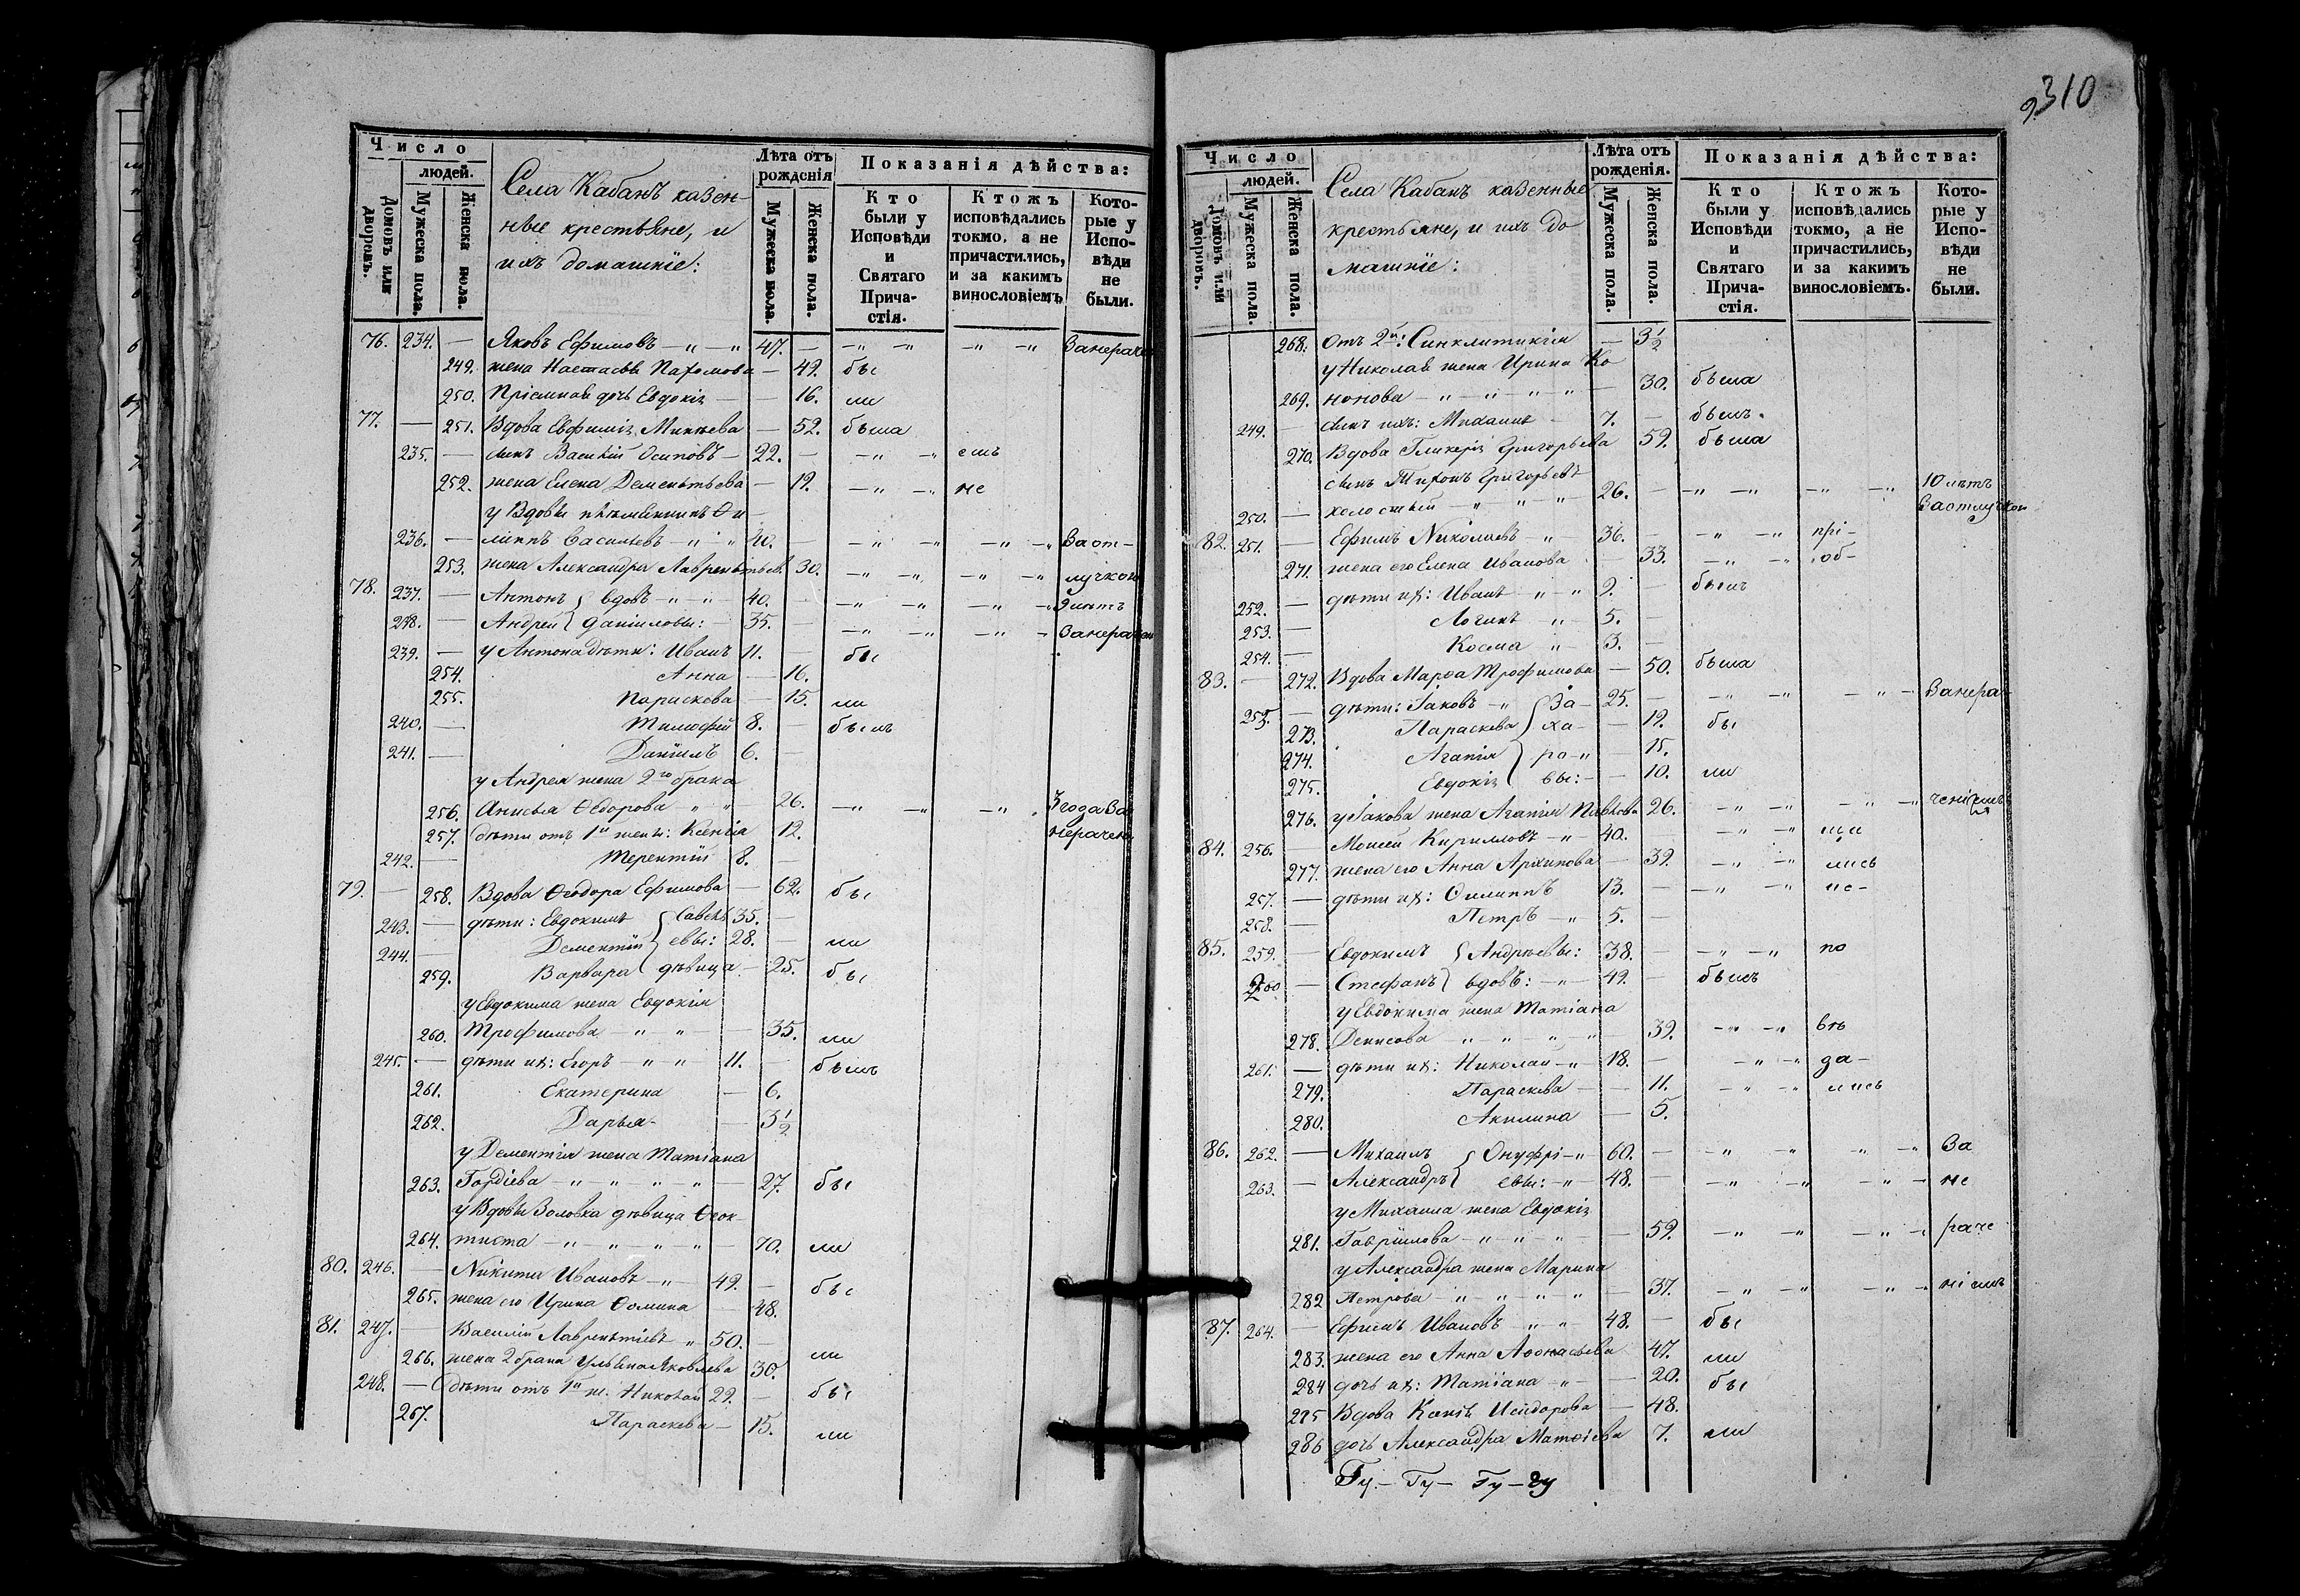 310
Число
людей.
Домовъ или дворовъ.
Мужеска пола.
Женска пола.
Села Кабанъ казен-
ные крестьяне, и
ихъ домашніе:
Лѣта отъ рожденія
Мужеска пола.
Женска пола.
Показанія дѣйства:
Кто были у Исповѣди и Святаго Прича-стія.
Ктожъ исповѣдались токмо, а не причастились, и за какимъ винословіемъ
Кото-рые у Испо-вѣди не были.
76. 234. — Яковъ Ефимовъ — „ — „ 47. — — „ — „ — „ — „
249. жена Настасья Пахомова — 49. бы
250. Пріемная дочь Евдокія — — 16. ли
77. — 251. Вдова Евфимія Михѣева — 52. была
235. — сынъ Василій Осиповъ — 22. — — „ — „
252. жена Елена Дементьева — 19. — „ — „ не
у Вдовы племянникъ Фи-
236. — липпъ Васильевъ — „ — „ 40. — — „ — „ — „ — „ Вэот-
253. жена Александра Лаврентьева 30. — „ — „ — „ — „ лучкою
78. 237. — Антонъ { вдовъ — „ — „ 40. — — „ — „ — „ — „
238. — Андрей { Даніиловы: — 35. — — „ — „ — „ —
239. — у Антона дѣти: Иванъ 11. — бы
254. Анна — 16.
255. Параскева — 15. ли
240. — Тимофей 8. — былъ
241. — Даніилъ 6. —
у Андрея жена 2го брака
256. Анисья Ѳедорова „ „ 26. — „ — „ — „ „ 3 года За
257. дѣти отъ 1й жены: Ксенія 12. нерачен
242. — Терентій 8. —
79. — 258. Вдова Ѳеодора Ефимова — 62. бы
243. — дѣти: Евдокимъ { Савель 35. —
244. — Дементій { евы: 28. — ли
259. Варвара { дѣвица — 25. бы
у Евдокима жена Евдокія
260. Трофимова — „ „ — — 35. ли
245. — дѣти их: Егоръ — „ „ 11. — былъ
261. Екатерина — 6.
262. Дарья — — 3½
у Дементія жена Татіана
263. Гордіева — „ — „ — „ — 27. бы
у Вдовы Золовка дѣвица Ѳеок-
264. тиста — „ — „ — „ — „ — 70. ли
80. 246. — Никита Ивановъ — „ — 49. — бы
265. жена его Ирина Ѳомина — 48.
81. 247. — Василій Лаврентіевъ „ 50. — ли
266. жена 2 брака Ульяна Яковлева 30.
248. — дѣти отъ 1й ж. Николай 29. — бы
267. Параскева — 15. ли
Число
людей.
Домовъ или дворовъ.
Мужеска пола.
Женска пола.
Села Кабанъ казенные
крестьяне, и ихъ до
машніе:
Лѣта отъ рожденія.
Мужеска пола.
Женска пола.
Показанія дѣйства:
Кто были у Исповѣди и Святаго Прича-стія.
Ктожъ исповѣдались токмо, а не причастились, и за какимъ винословіемъ.
Кото-рые у Испо-вѣди не были.
268. Отъ 2й: Синклитикія — 3½
у Николая жена Ирина Ко
269. нонова — „ — „ „ „ — 30. была
249. — сынъ ихъ: Михаилъ 7. — былъ.
270. Вдова Гликерія Григорьева 59. была
сынъ Тихонъ Григорьевъ
250. — холостый — „ „ — „ 26. — — „ — „ — „ — „ 10 лѣтъ
Заотлучкой
82. 251. — Ефимъ Николаевъ — „ 36. — — „ — „ прі-
271. жена его Елена Иванова — 33. — „ — „ об-
252. — дѣти их: Иванъ — „ — „ 9. — былъ
253. — Логинъ — „ — 5. —
254. — Косма „ — 3. —
83. — 272. Вдова Марѳа Трофимова — 50. была
255. — дѣти: Іаковъ — „ { За- 25. — — „ — „ — „ — Занера-
273. Параскева { ха- — 19. бы
274. Агапія { ро-„ — 15.
275. Евдокія { вы: — — 10. ли
276. у Іакова жена Агапія Павлова 26. — „ — „ — „ — „
84. 256. — Моисей Кирилловъ — „ 40. — „ — „ щи
277. жена его Анна Архипова — 39. — „ — „ лись
257. — дѣти их: Филиппъ 13. — — „ — „ не-
258. — Петръ — „ 5. —
85. 259. — Евдокимъ { Андреевы: 38. — — „ — „ по
260 — Стефанъ { вдовъ: — „ — 49. — былъ
у Евдокима жена Татіана
278. Денисова — „ — „ — „ — „ — 39. — „ — „ въ
261. — дѣти их: Николай — „ 18. — — „ — „ да-
279. Параскева — — 11. — „ — „ лись
280. Акилина — 5.
86. 262. — Михаилъ { Онуфрі-„ 60. — — „ — „ — „ — „ За
263. — Александръ { евы: — „ — 48. — — „ — „ — „ — не
у Михаила жена Евдокія
281. Гавріилова — „ — „ — „ — — 59. — „ — „ — „ — „ раче
у Александра жена Марина
282 Петрова — „ — „ — „ — „ — 37. — „ — „ — „ — ніемъ
87. 264. — Ефимъ Ивановъ — „ „ — 48. — бы
283. жена его Анна Аѳонасьева 47. ли
284 дочь их: Татіана — „ — — 20. бы
285 Вдова Ксенія Исидорова — 48.
286 дочь Александра Матѳіева 7. ли
Гу — Гу — Гу — гу